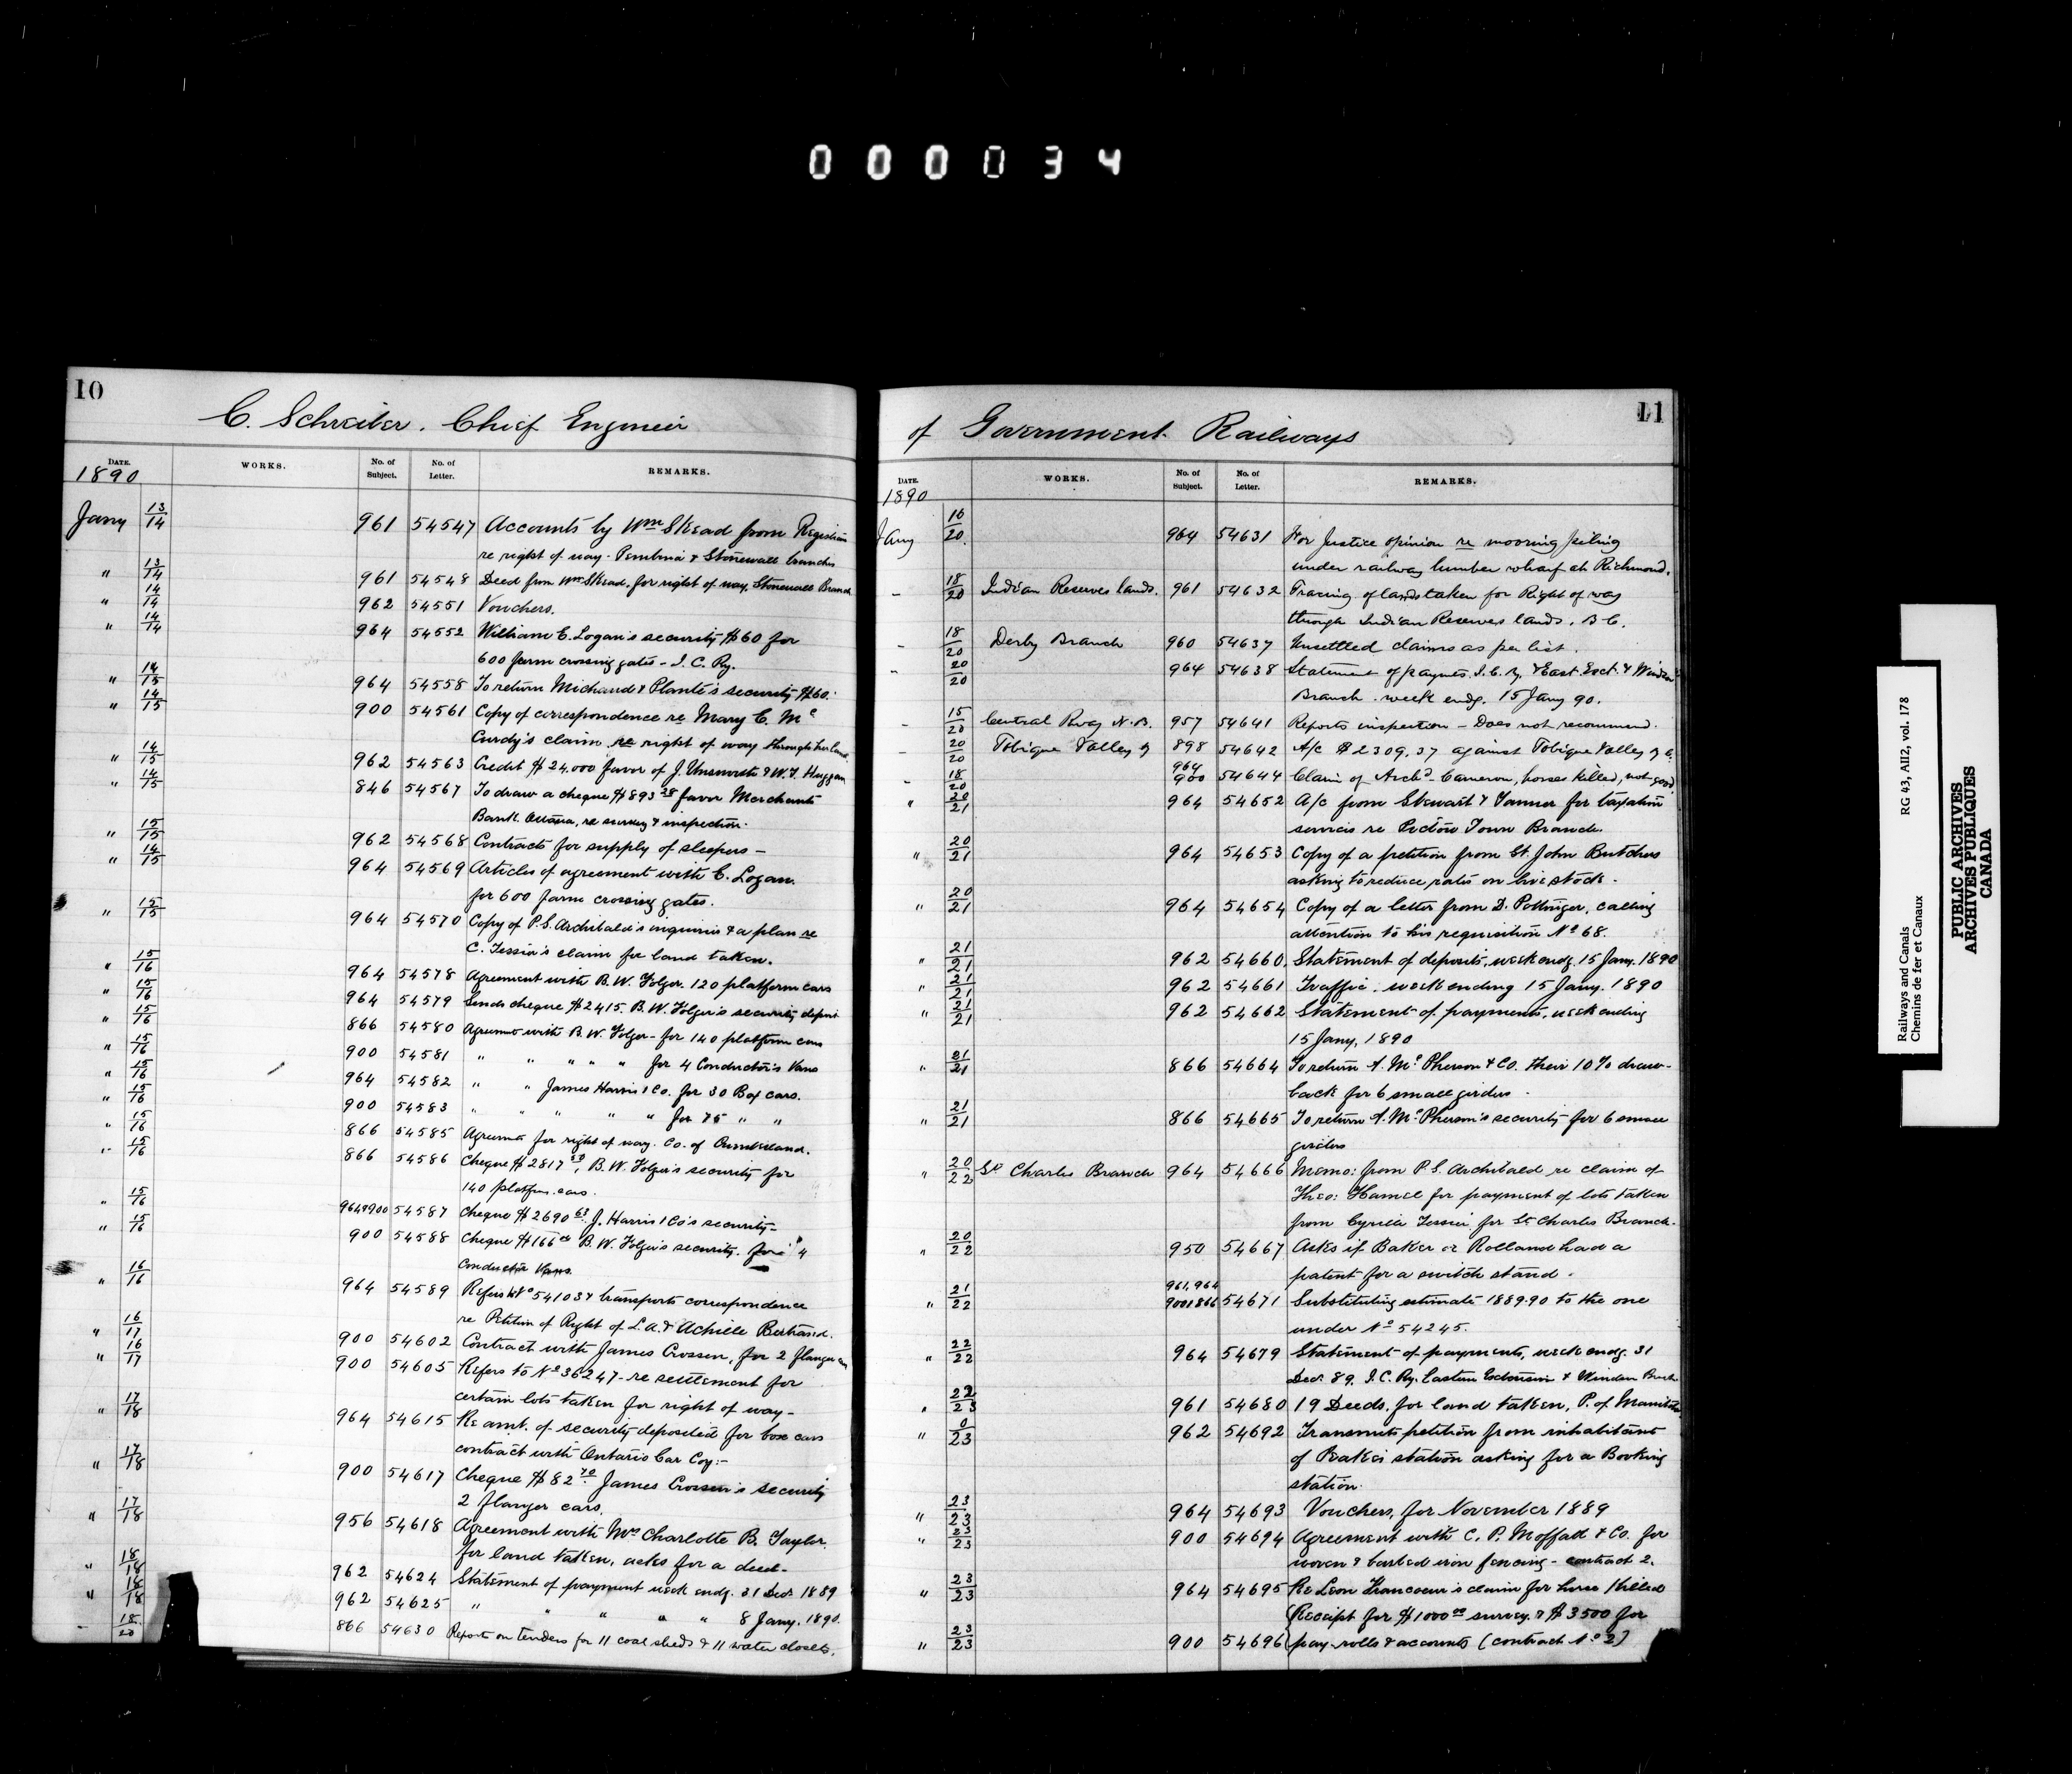 000034
10
C. Schreiber. Chief Engineer
DATE. WORKS. No. of Subject. No. of Letter. REMARKS.
1890
Jany 13/14 961 54547 Accounts by Wm Skead from Registrar
re right of way - Pembina & Stonewall branches
" 13/14 961 54548 Deed from Wm Skead, for right of way, Stonewall Branch
" 14/14 962 54551 Vouchers.
" 14/14 964 54552 William C. Logan's security $60 for
600 farm crossing gates - I. C. Ry.
" 14/15 964 54558 To return Michaud & Plante's security $60.
" 14/15 900 54561 Copy of correspondence re Mary C. Mc
Curdy's claim re right of way through her land.
" 14/15 962 54563 Credit $24,000 favor of J. Unsworth & W. T. Huggan
" 14/15 846 54567 To draw a cheque $893 28 favor Merchants
Bank Ottawa, re survey & inspection.
" 15/15 962 54568 Contracts for supply of sleepers -
" 14/15 964 54569 Articles of agreement with C. Logan
for 600 farm crossing gates.
" 15/15 964 54570 Copy of P.S. Archibald's inquiries & a plan re
C. Tessier's claim for land taken.
" 15/16 964 54578 Agreement with B.W. Folger. 120 platform cars
" 15/16 964 54579 Sends cheque $2415. B.W. Folger's security deposit
" 15/16 866 54580 Agreement with B.W. Folger - for 140 platform cars
" 15/16 900 54581 " " " " " for 4 Conductor's Vans
" 15/16 964 54582 " " James Harris & Co. for 30 Box cars.
" 15/16 900 54583 " " " " " for 75 " "
" 15/16 866 54585 Agreemt for right of way. Co. of Cumberland.
" 15/16 866 54586 Cheque $2817 50, B.W. Folger's security for
140 platfm. cars.
" 15/16 964&900 54587 Cheque $2690 63 J. Harris & Co's security -
" 15/16 900 54588 Cheque $166 B.W. Folger's security. for 4
Conductor Vans.
" 16/16 964 54589 Refers to No 54103 & transmits correspondence
re Petition of Right of L.A. & Achille Bertrand.
" 16/17 900 54602 Contract with James Crossen, for 2 flanger cars
" 16/17 900 54605 Refers to No 36247 - re settlement for
certain lots taken for right of way -
" 17/18 964 54615 Re amt. of security deposited for box cars
contract with Ontario Car Coy:-
" 17/18 900 54617 Cheque $82 70 James Crossen's security
2 flanger cars.
" 17/18 956 54618 Agreement with Mrs Charlotte B. Taylor
for land taken, asks for a deed -
" 18/18 962 54624 Statement of payment week endg. 31 Decr 1889
" 18/18 962 54625 " " " " " 8 Jany. 1890.
18/20 866 54630 Reports on tenders for 11 coal sheds & 11 water closets.
11
of Government Railways
DATE. WORKS. No. of Subject. No. of Letter. REMARKS.
1890
Jany 16/20 964 54631 For Justice opinion re mooring piling
under railway lumber wharf at Richmond.
- 18/20 Indian Reserves lands. 961 54632 Tracing of lands taken for Right of way
through Indian Reserves lands. B.C.
- 18/20 Derby Branch 960 54637 Unsettled claims as per list.
- 20/20 964 54638 Statement of paymts. I.C.Ry. & East. Ext. & Windsor
Branch - week endg. 15 Jany 90.
- 15/20 Central Rway N.B. 957 54641 Reports inspection - Does not recommend.
- 20/20 Tobique Valley Ry 898 54642 A/c $2309.37 against Tobique Valley Ry Co.
- 18/20 964 900 54644 Claim of Archd. Cameron, horse killed, not good.
" 20/21 964 54652 A/c from Stewart & Tanner for taxation
services re Pictou Town Branch.
" 20/21 964 54653 Copy of a petition from St. John Butchers
asking to reduce rates on live stock.
" 20/21 964 54654 Copy of a letter from D. Pottinger, calling
attention to his requisition No 68.
" 21/21 962 54660 Statement of deposits, week endg. 15 Jany. 1890
" 21/21 962 54661 Traffic. week ending 15 Jany. 1890
" 21/21 962 54662 Statement of payments, week ending
15 Jany, 1890
" 21/21 866 54664 To return A. McPherson & Co. their 10% draw-
back for 6 small girders.
" 21/21 866 54665 To return A. McPherson's security for 6 small
girders
" 20/22 St Charles Branch 964 54666 Memo: from P.S. Archibald re claim of
Theo: Hamel for payment of lots taken
from Cyrille Tessier for St Charles Branch.
" 20/22 950 54667 Asks if Baker or Rolland had a
patent for a switch stand.
" 21/22 961, 964 900 & 866 54671 Substituting estimate 1889.90 to the one
under No 54245.
" 22/22 964 54679 Statement of payments, week endg. 31
Decr 89. I.C. Ry. Eastern Extension & Windsor Branch
" 22/23 961 54680 19 Deeds, for land taken, P. of Manitoba
" 0/23 962 54692 Transmits petition from inhabitants
of station asking for a Booking
station.
" 23/23 964 54693 Vouchers, for November 1889
" 23/23 900 54694 Agreement with C. P. Moffatt & Co. for
woven & barbed iron fencing - contract 2.
" 23/23 964 54695 Re Leon Francoeur's claim for horse killed
" 23/23 900 54696 {Receipt for $1000 00 survey & $3500 for
pay-rolls & accounts (contract No 2)
Railways and Canals RG 43, AII2, vol. 178
Chemins de fer et Canaux
PUBLIC ARCHIVES
ARCHIVES PUBLIQUES
CANADA